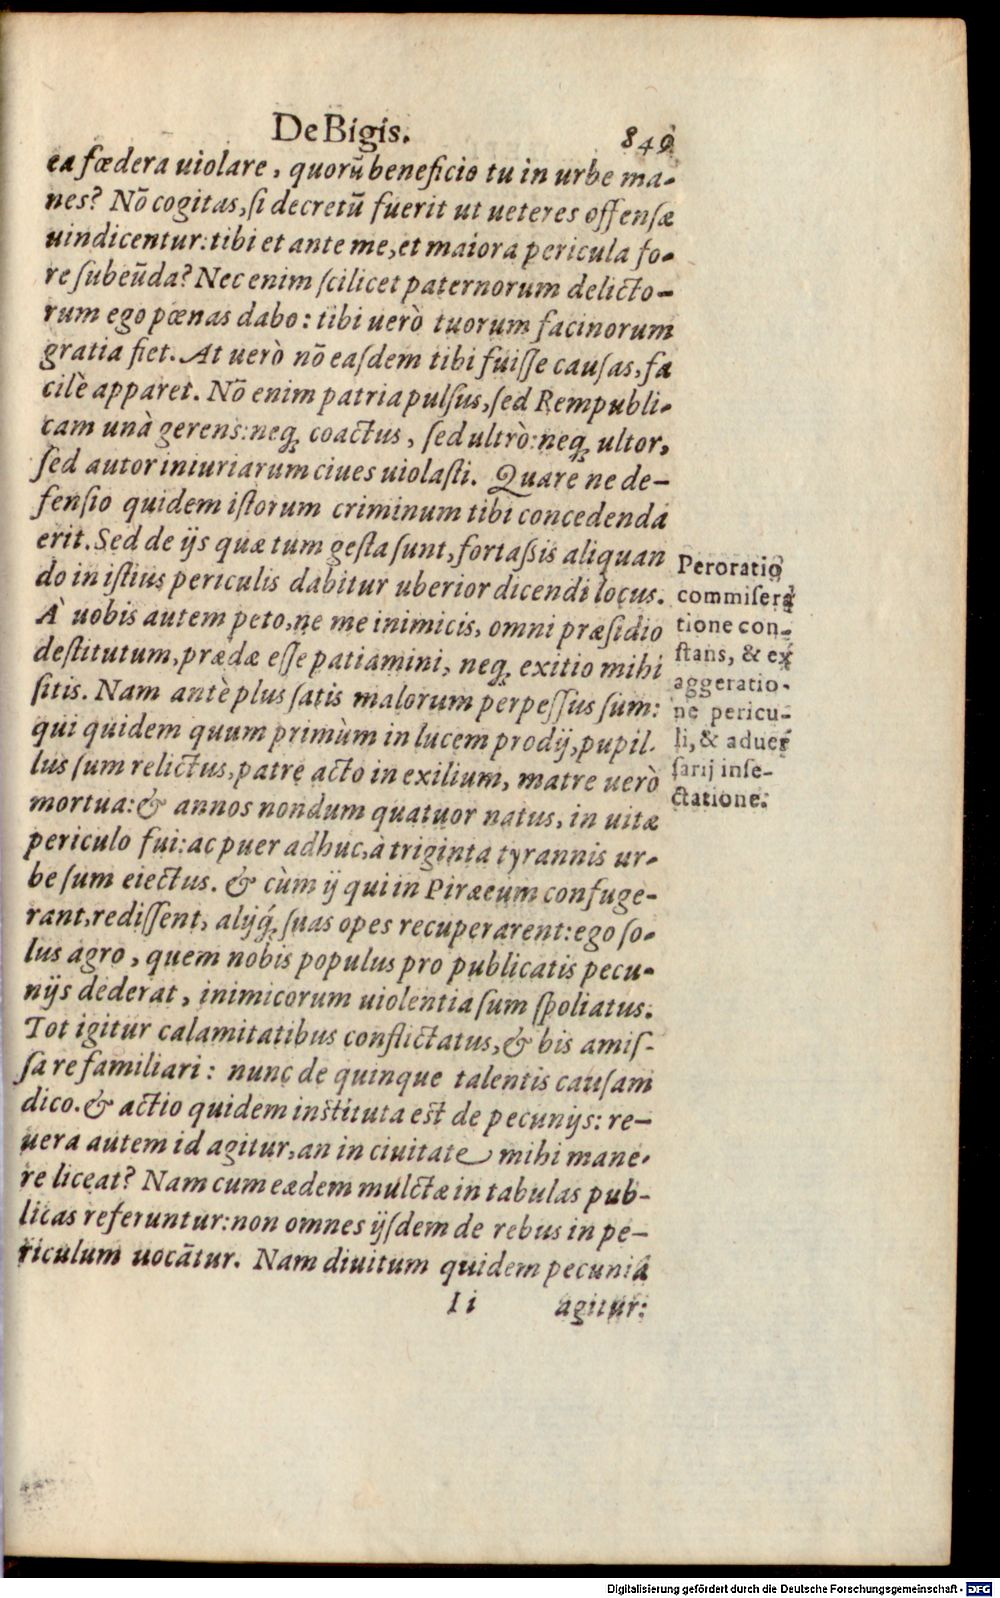 De Bigis. 849
ea fœdera uiolare, quorũ beneficio tu in urbe ma-
nes? Nõ cogitas, ſi decretũ fuerit ut ueteres offenſæ
uindicentur: tibi et ante me, et maiora pericula fo-
re ſubeũda? Nec enim ſcilicet paternorum delicto-
rum ego pœnas dabo: tibi uerò tuorum facinorum
gratia fiet. At uerò nõ eaſdem tibi fuiſſe cauſas, fa
cilè apparet. Nõ enim patria pulſus, ſed Rempubli-
cam unà gerens: neq; coactus, ſed ultrò: neq; ultor,
ſed autor iniuriarum ciues uiolaſti. Quare ne de-
fenſio quidem iſtorum criminum tibi concedenda
erit. Sed de ijs quæ tum geſta ſunt, fortaſsis aliquan
do in iſtius periculis dabitur uberior dicendi locus.
À uobis autem peto, ne me inimicis, omni præſidio
deſtitutum, prædæ eſſe patiamini, neq; exitio mihi
ſitis. Nam antè plus ſatis malorum perpeſſus ſum:
qui quidem quum primùm in lucem prodij, pupil-
lus ſum relictus, patre acto in exilium, matre uerò
mortua: & annos nondum quatuor natus, in uitæ
periculo fui: ac puer adhuc, à triginta tyrannis ur-
be ſum eiectus. & cùm ij qui in Piræeum confuge-
rant, rediſſent, alijq́; ſuas opes recuperarent: ego ſo-
lus agro, quem nobis populus pro publicatis pecu-
nijs dederat, inimicorum uiolentia ſum ſpoliatus.
Tot igitur calamitatibus conflictatus, & bis amiſ-
ſa re familiari: nunc de quinque talentis cauſam
dico. & actio quidem inſtituta eſt de pecunijs: re-
uera autem id agitur, an in ciuitate mihi mane-
re liceat? Nam cum eædem mulctæ in tabulas pub-
licas referuntur: non omnes ijſdem de rebus in pe-
riculum uocãtur. Nam diuitum quidem pecunia
Ii agitur:
Peroratio
commiſera
tione con-
ſtans, & ex
aggeratio-
ne pericu-
li, & aduer
ſarij inſe-
ctatione.
Digitalisierung gefördert durch die Deutsche Forschungsgemeinschaft - DFG